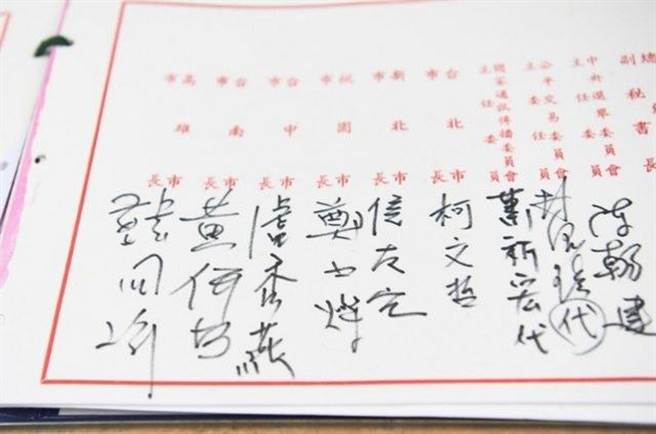 副秘書長
中央選舉委員會
主任委員
陳朝建
公平交易委員會
主任委員
代
國家通訊傳播委員會
主任委員
蕭祈宏代
台北市
市長
柯文哲
新北市
市長
侯友宜
桃園市
市長
鄭文燦
台中市
市長
盧秀燕
台南市
市長
黃偉哲
高雄市
市長
韓国瑜